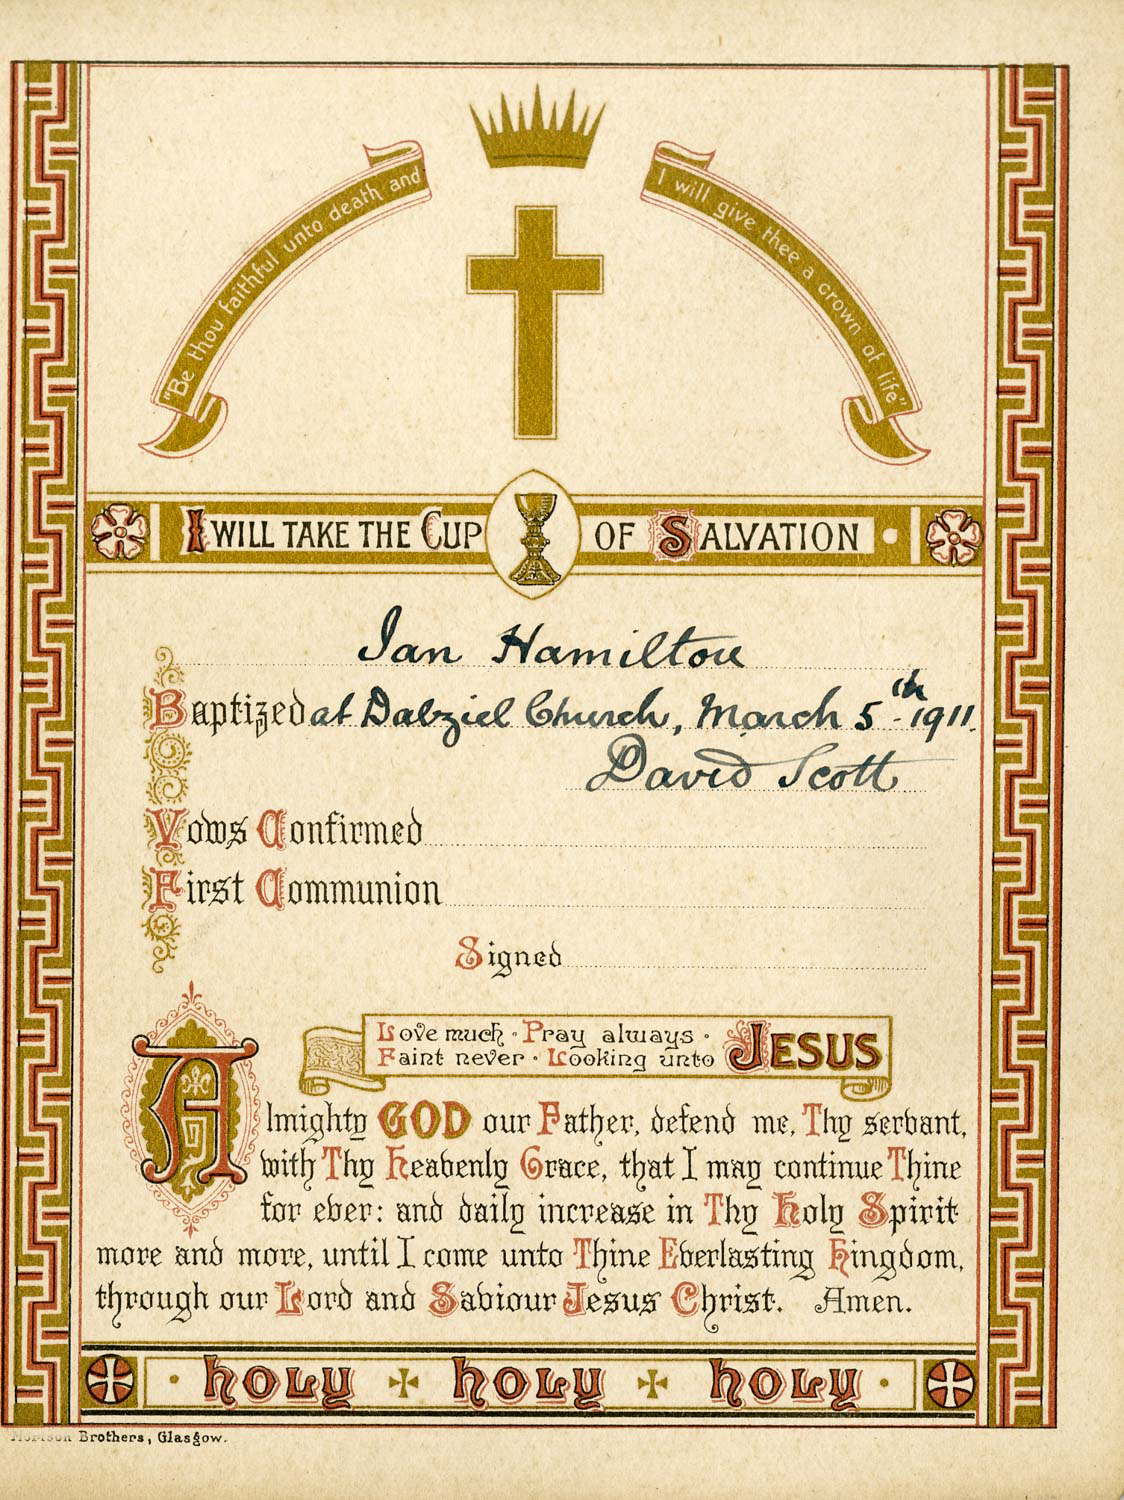 "Be thou faithful unto death and
I will give thee a crown of life"
I WILL TAKE THE CUP OF SALVATION
Ian Hamilton
Baptized at Dalziel Church, March 5th 1911.
David Scott
Vows Confirmed
First Communion
Signed
Love much · Pray always ·
Faint never · Looking unto JESUS
Almighty GOD our Father, defend me, Thy servant,
with Thy Heavenly Grace, that I may continue Thine
for ever: and daily increase in Thy Holy Spirit
more and more, until I come unto Thine Everlasting Kingdom,
through our Lord and Saviour Jesus Christ. Amen.
· HOLY ✠ HOLY ✠ HOLY ·
Morison Brothers, Glasgow.